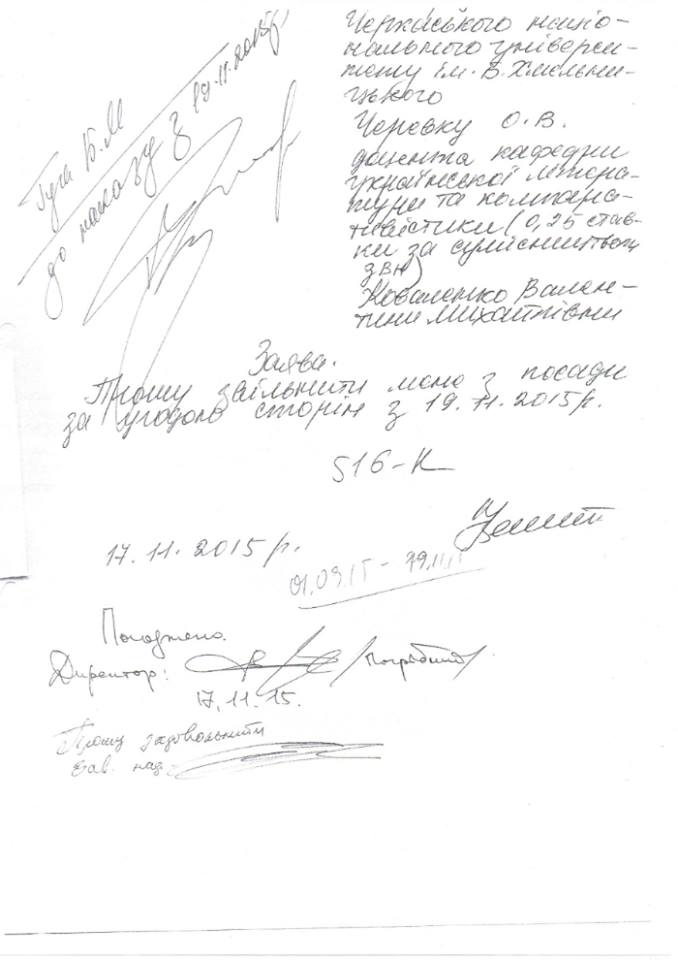 Гуга Б.М
до наказу з 19.11.2015р.
Черкаського націо-
нального універси-
тету ім. Б. Хмельни-
цького
Черевку О.В.
доцента кафедри
української літера-
тури та компара-
тивістики (0,25 став-
ки за сумісництвом
ЗВН)
Коваленко Вален-
тини Михайлівни
Заява.
Прошу звільнити мене з посади
за угодою сторін з 19.11.2015р.
516-К
17.11.2015р.
01.09.15 - 19.11.15
Погоджено.
Директор:
17.11.15.
Прошу задовольнити
Зав. каф.